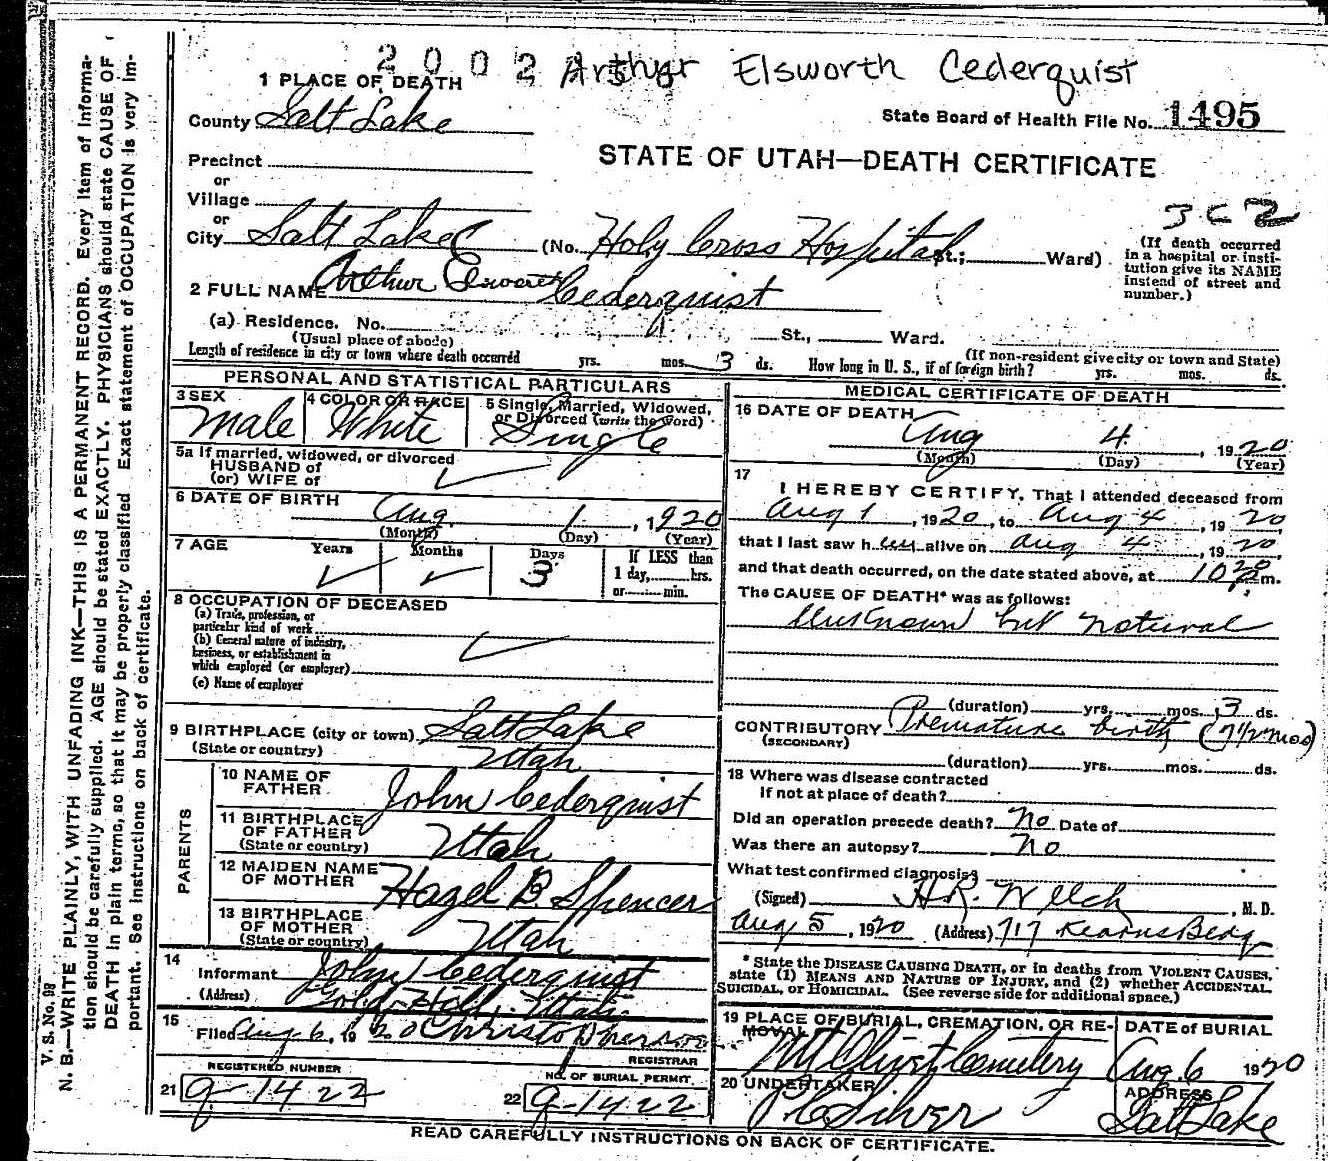 2002 Arthur Elsworth Cederquist
1 PLACE OF DEATH
County Salt Lake
State Board of Health File No. 1495
Precinct
or
Village
or
City Salt Lake C (No. Holy Cross Hospital St.; Ward)
STATE OF UTAH—DEATH CERTIFICATE
3 C 2
(If death occurred
in a hospital or insti-
tution give its NAME
instead of street and
number.)
2 FULL NAME Arthur Elsworth Cederquist
(a) Residence. No. St., Ward.
(Usual place of abode)
(If non-resident give city or town and State)
Length of residence in city or town where death occurred yrs. mos. 3 ds. How long in U. S., if of foreign birth? yrs. mos. ds.
PERSONAL AND STATISTICAL PARTICULARS
3 SEX
Male
4 COLOR OR RACE
White
5 Single, Married, Widowed,
or Divorced (write the word)
Single
5a If married, widowed, or divorced
HUSBAND of
(or) WIFE of
6 DATE OF BIRTH
Aug. 1, 1920
(Month) (Day) (Year)
7 AGE Years Months Days
3
If LESS than
1 day, hrs.
or min.
8 OCCUPATION OF DECEASED
(a) Trade, profession, or
particular kind of work
(b) General nature of industry,
business, or establishment in
which employed (or employer)
(c) Name of employer
9 BIRTHPLACE (city or town) Salt Lake
(State or country) Utah
PARENTS
10 NAME OF
FATHER John Cederquist
11 BIRTHPLACE
OF FATHER
(State or country) Utah
12 MAIDEN NAME
OF MOTHER Hazel B Spencer
13 BIRTHPLACE
OF MOTHER
(State or country) Utah
14
Informant John Cederquist
(Address) Gold Hill, Utah
15
Filed Aug 6, 1920 Christopherson
REGISTRAR
REGISTERED NUMBER
21 9-1422
NO. OF BURIAL PERMIT
22 9-1422
MEDICAL CERTIFICATE OF DEATH
16 DATE OF DEATH
Aug 4, 1920
(Month) (Day) (Year)
17
I HEREBY CERTIFY, That I attended deceased from
Aug 1, 1920, to Aug 4, 1920,
that I last saw him alive on Aug 4, 1920
and that death occurred, on the date stated above, at 10 20 p m.
The CAUSE OF DEATH* was as follows:
Unknown but natural
(duration) yrs. mos. 3 ds.
CONTRIBUTORY Premature birth (7 1/2 mos)
(SECONDARY)
(duration) yrs. mos. ds.
18 Where was disease contracted
If not at place of death?
Did an operation precede death? No Date of
Was there an autopsy? No
What test confirmed diagnosis?
(Signed) H.R. Welch, M. D.
Aug 5, 1920 (Address) 717 Kearns Bldg
* State the DISEASE CAUSING DEATH, or in deaths from VIOLENT CAUSES,
state (1) MEANS AND NATURE OF INJURY, and (2) whether ACCIDENTAL
SUICIDAL, or HOMICIDAL. (See reverse side for additional space.)
19 PLACE OF BURIAL, CREMATION, OR RE-
MOVAL
Mt Olivet Cemetery
DATE of BURIAL
Aug 6 1920
20 UNDERTAKER
ADDRESS
Silver
Salt Lake
READ CAREFULLY INSTRUCTIONS ON BACK OF CERTIFICATE.
V. S. No. 98
N. B.—WRITE PLAINLY, WITH UNFADING INK—THIS IS A PERMANENT RECORD. Every item of informa-
tion should be carefully supplied. AGE should be stated EXACTLY. PHYSICIANS should state CAUSE OF
DEATH in plain terms, so that it may be properly classified. Exact statement of OCCUPATION is very im-
portant. See instructions on back of certificate.